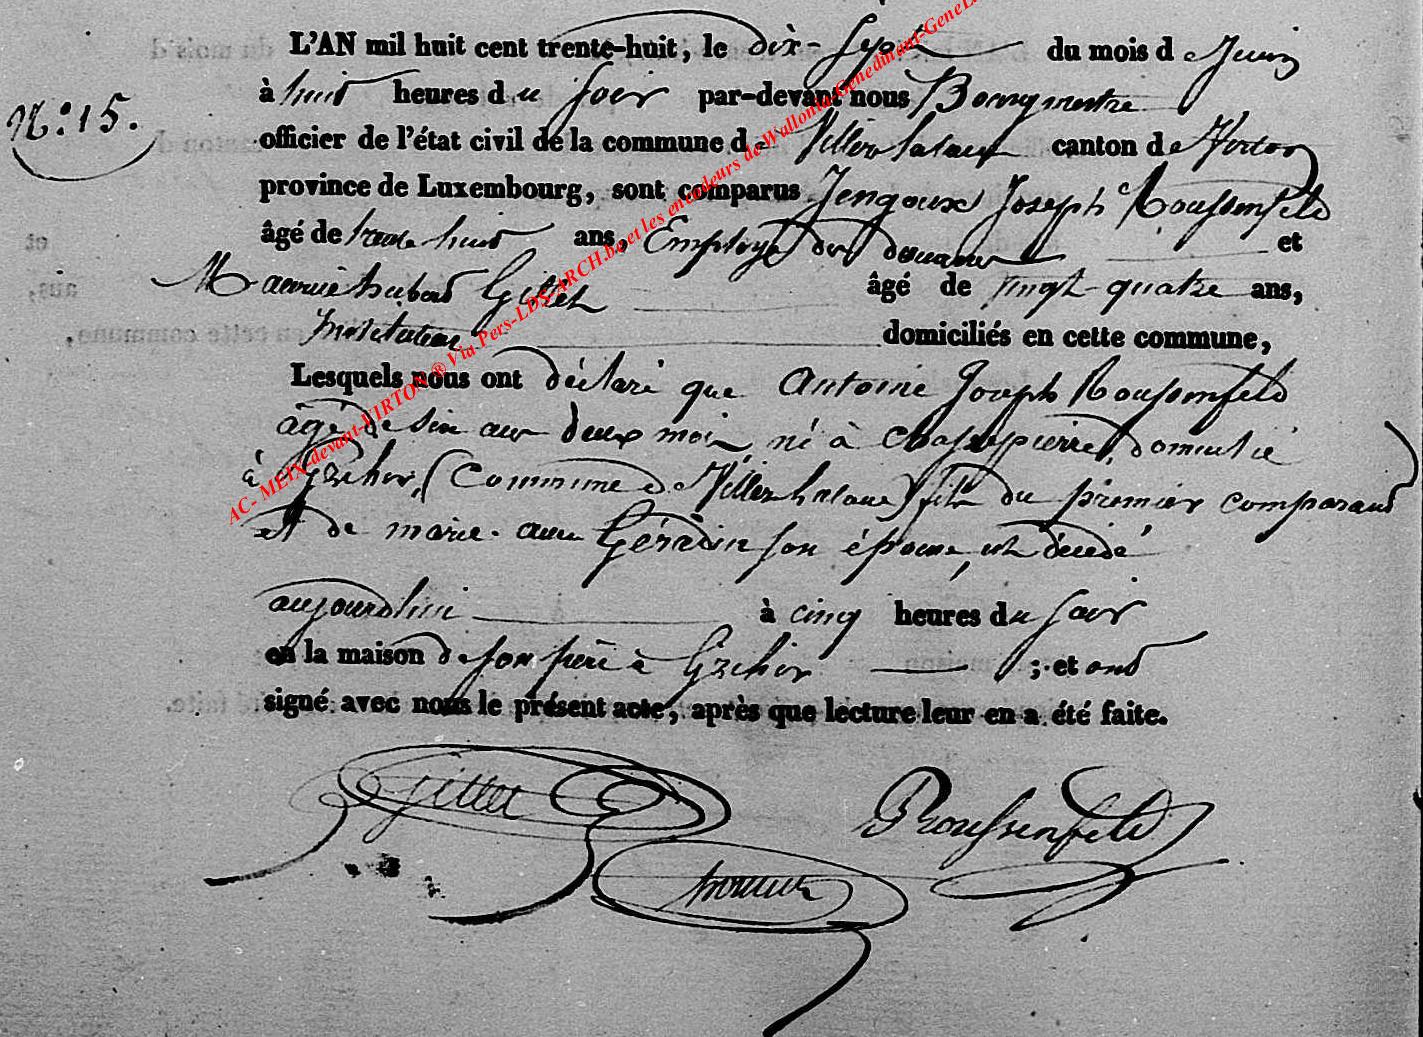 L'AN mil huit cent trente-huit, le dix-sept du mois de Juin
N.° 15.
à huit heures du soir par-devant nous Bourgmestre
officier de l'état civil de la commune de Villers la loue canton de Virton
province de Luxembourg, sont comparus Joseph Roussenfeld
âgé de trente huit ans, Employé des douanes et
hubert Gillet âgé de vingt-quatre ans,
Instituteur domiciliés en cette commune,
Lesquels nous ont déclaré que Antoine Joseph Roussenfeld
âgé de six ans deux mois, né à chassepierre, domicilié
à (Commune de Villers la loue) fils du premier comparant
et de marie-anne Gérardin son épouse, est décédé
aujourdhui à cinq heures du soir
en la maison de son père à ; et ont
signé avec nous le présent acte, après que lecture leur en a été faite.
Gillet Roussenfeld
AC- MEIX-devant-VIRTON ® Via Pers-LDS-ARCH.be et les encodeurs de Wallonia-Genedinant-GeneL